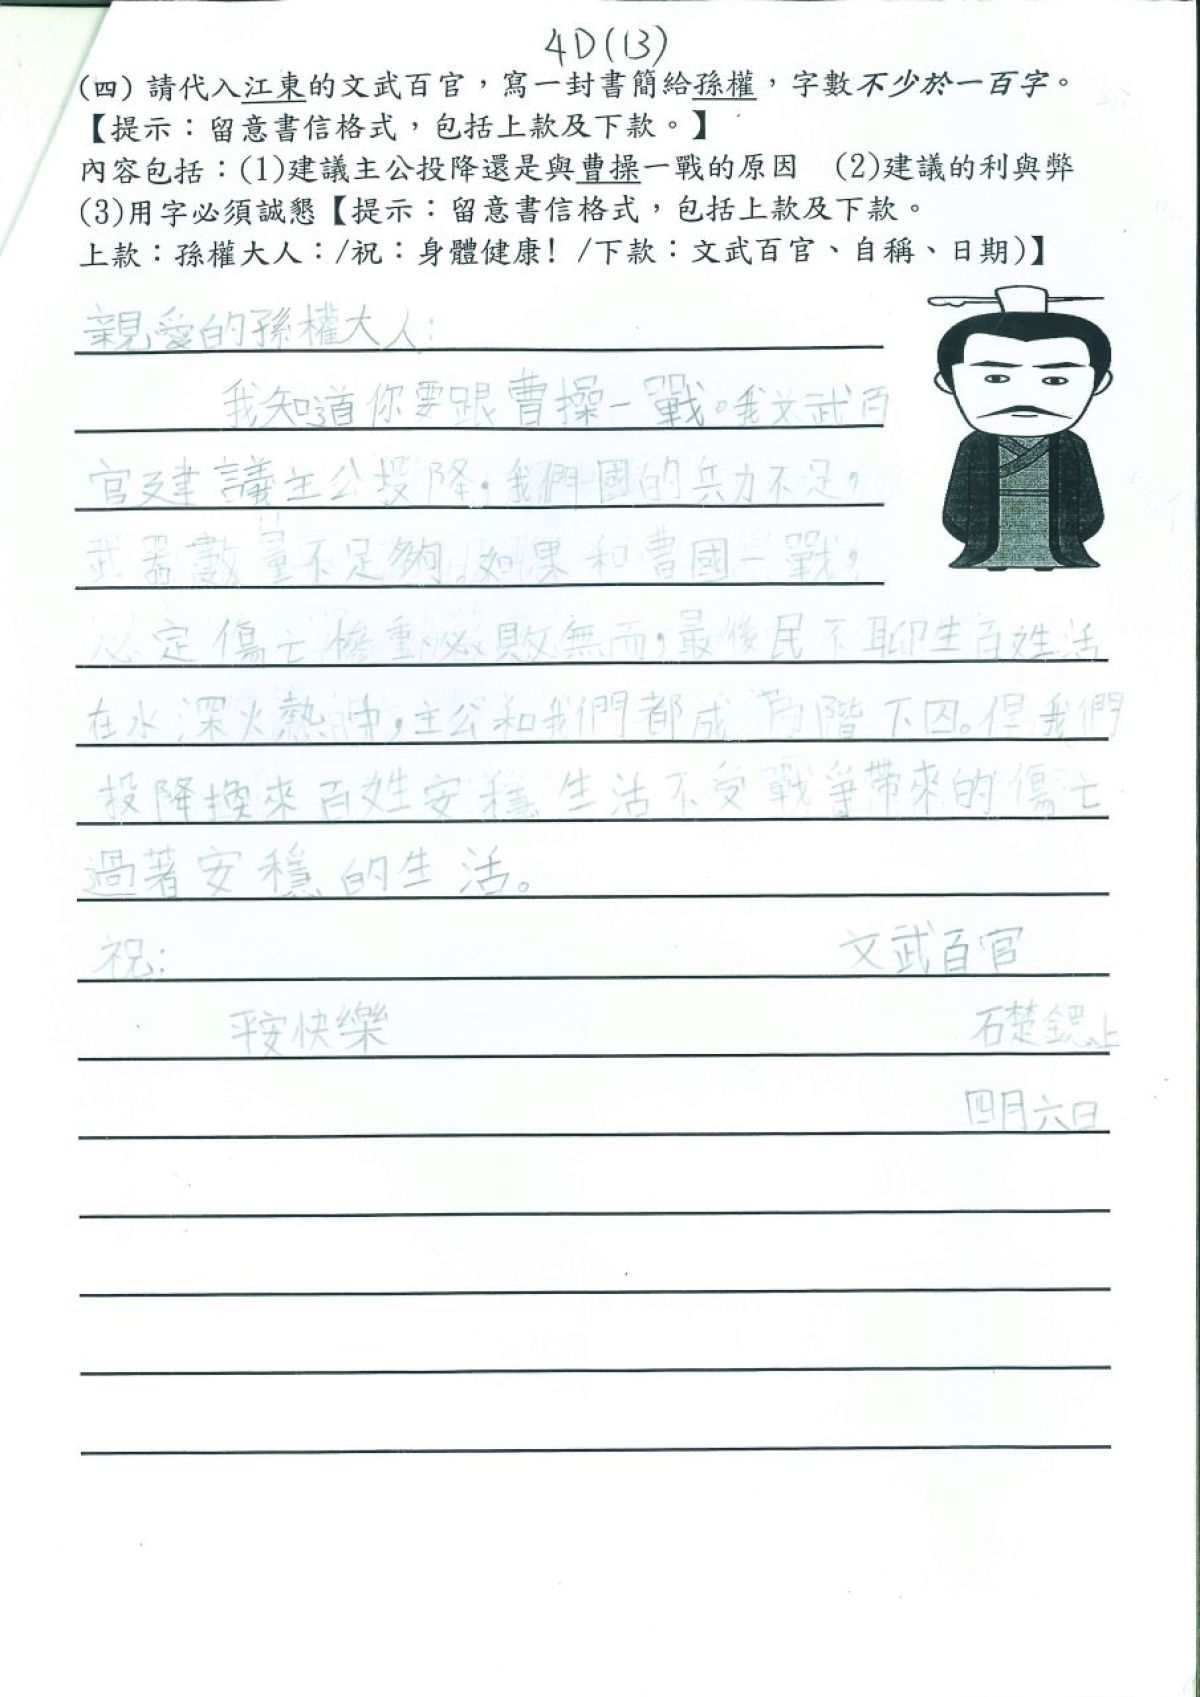 4D(13)
(四) 請代入江東的文武百官，寫一封書簡給孫權，字數不少於一百字。
【提示：留意書信格式，包括上款及下款。】
內容包括：(1)建議主公投降還是與曹操一戰的原因　(2)建議的利與弊
(3)用字必須誠懇【提示：留意書信格式，包括上款及下款。
上款：孫權大人：/祝：身體健康! /下款：文武百官、自稱、日期)】
親愛的孫權大人：
我知道你要跟曹操一戰。我文武百
官建議主公投降，我們國的兵力不足，
武器數量不足夠，如果和曹國一戰，
必定傷亡慘重，必敗無而，最後民不聊生百姓活
在水深火熱中，主公和我們都成為階下囚。但我們
投降換來百姓安穩生活不受戰爭帶來的傷亡
過著安穩的生活。
祝：　文武百官
平安快樂　石楚鍶上
四月六日